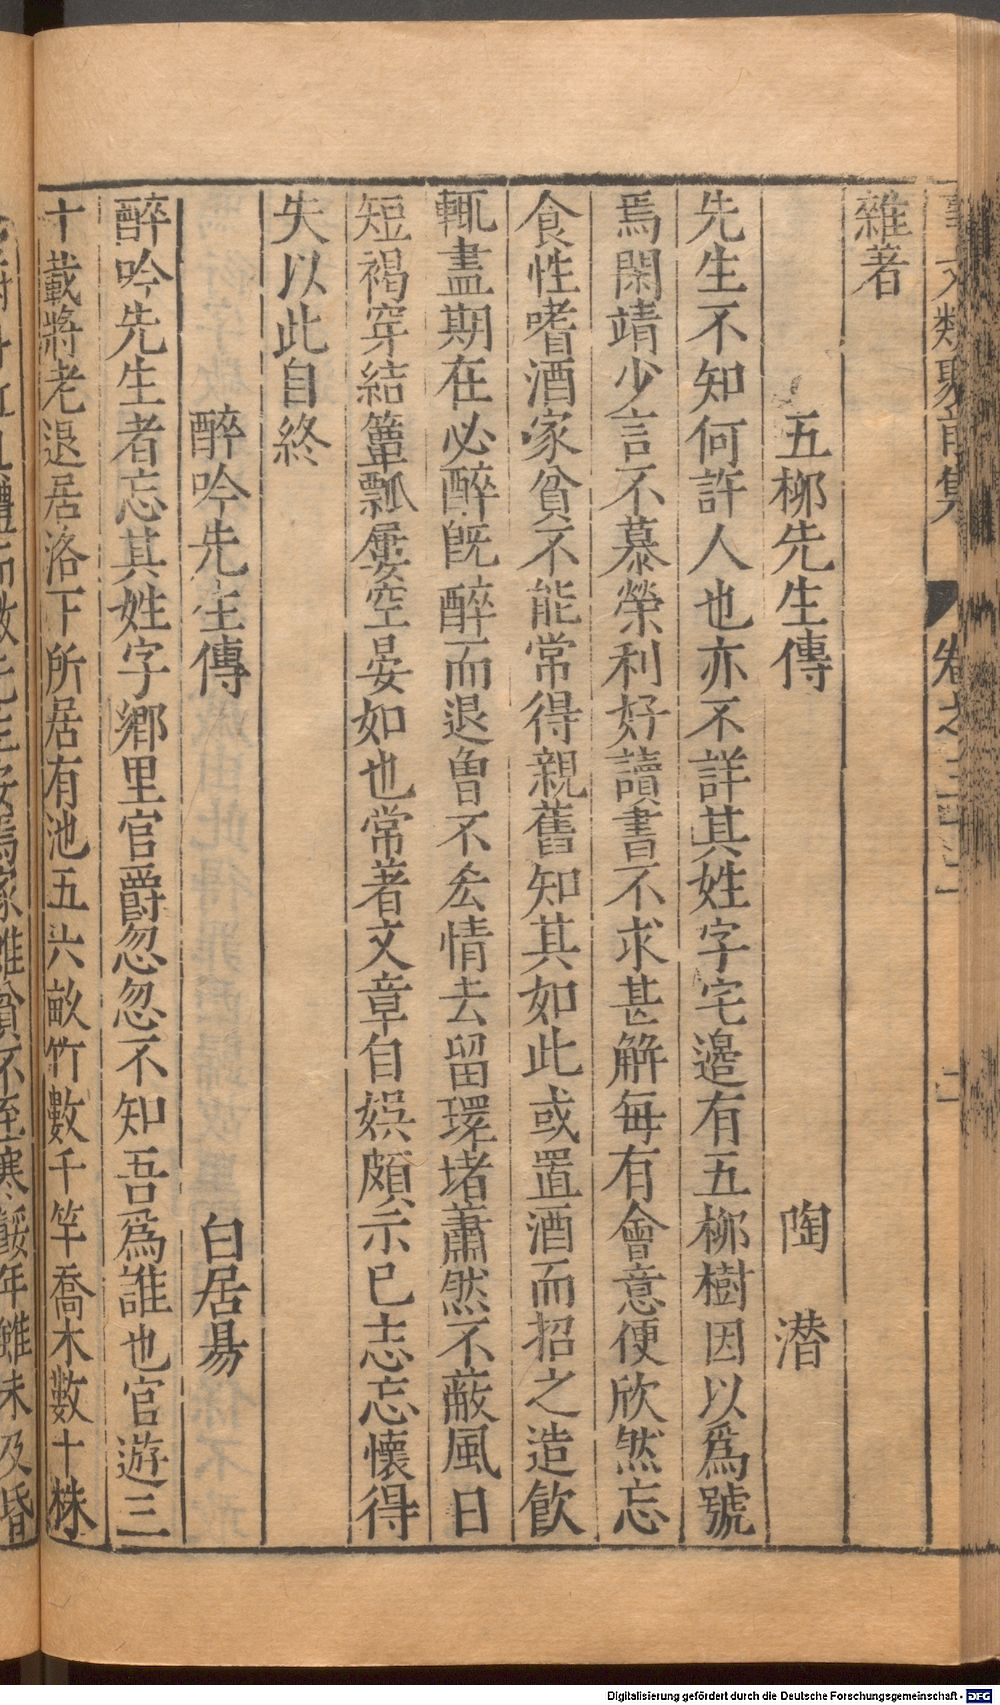 雜著
五桞先生傳 陶潛
先生不知何許人也亦不詳其姓字宅邉有五桞樹因以爲號
焉閑靖少言不慕榮利好讀書不求甚解每有會意便欣然忘
食性嗜酒家貧不能常得親舊知其如此或置酒而招之造飲
輒盡期在必醉旣醉而退曾不吝情去留環堵蕭然不蔽風日
短褐穿結簞瓢屢空晏如也常著文章自娯頗示已志忘懷得
失以此自終
醉吟先生傳 白居易
醉吟先生者忘其姓字鄉里官爵忽忽不知吾爲誰也官遊三
十載將老退居洛下所居有池五六畝竹數千竿喬木數十株
Digitalisierung gefördert durch die Deutsche Forschungsgemeinschaft - DFG